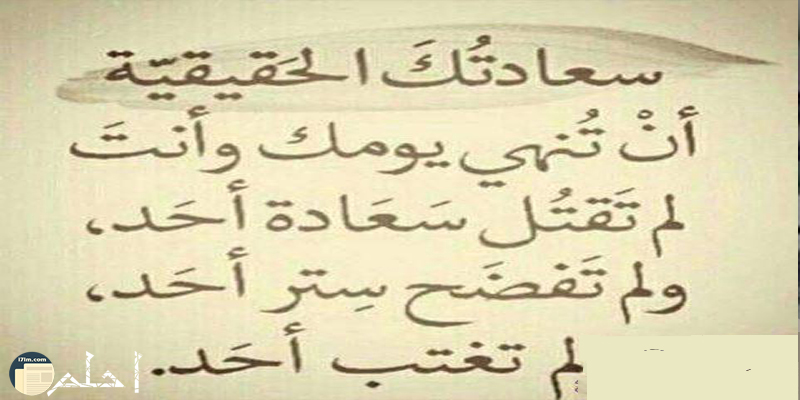 سعادتُكَ الحَقيقيّة
أنْ تُنهي يومك وأنتَ
لم تَقتُل سَعَادة أحَد،
ولم تَفضَح سِتر أحَد،
لم تغتب أحَد.
i7lm.com
احلم